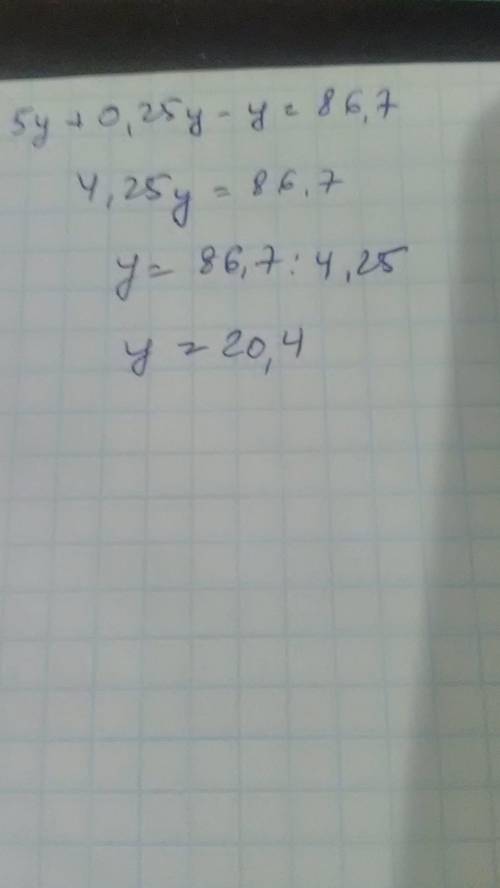 5y + 0,25y - y = 86,7
4,25y = 86,7
y = 86,7 : 4,25
y = 20,4